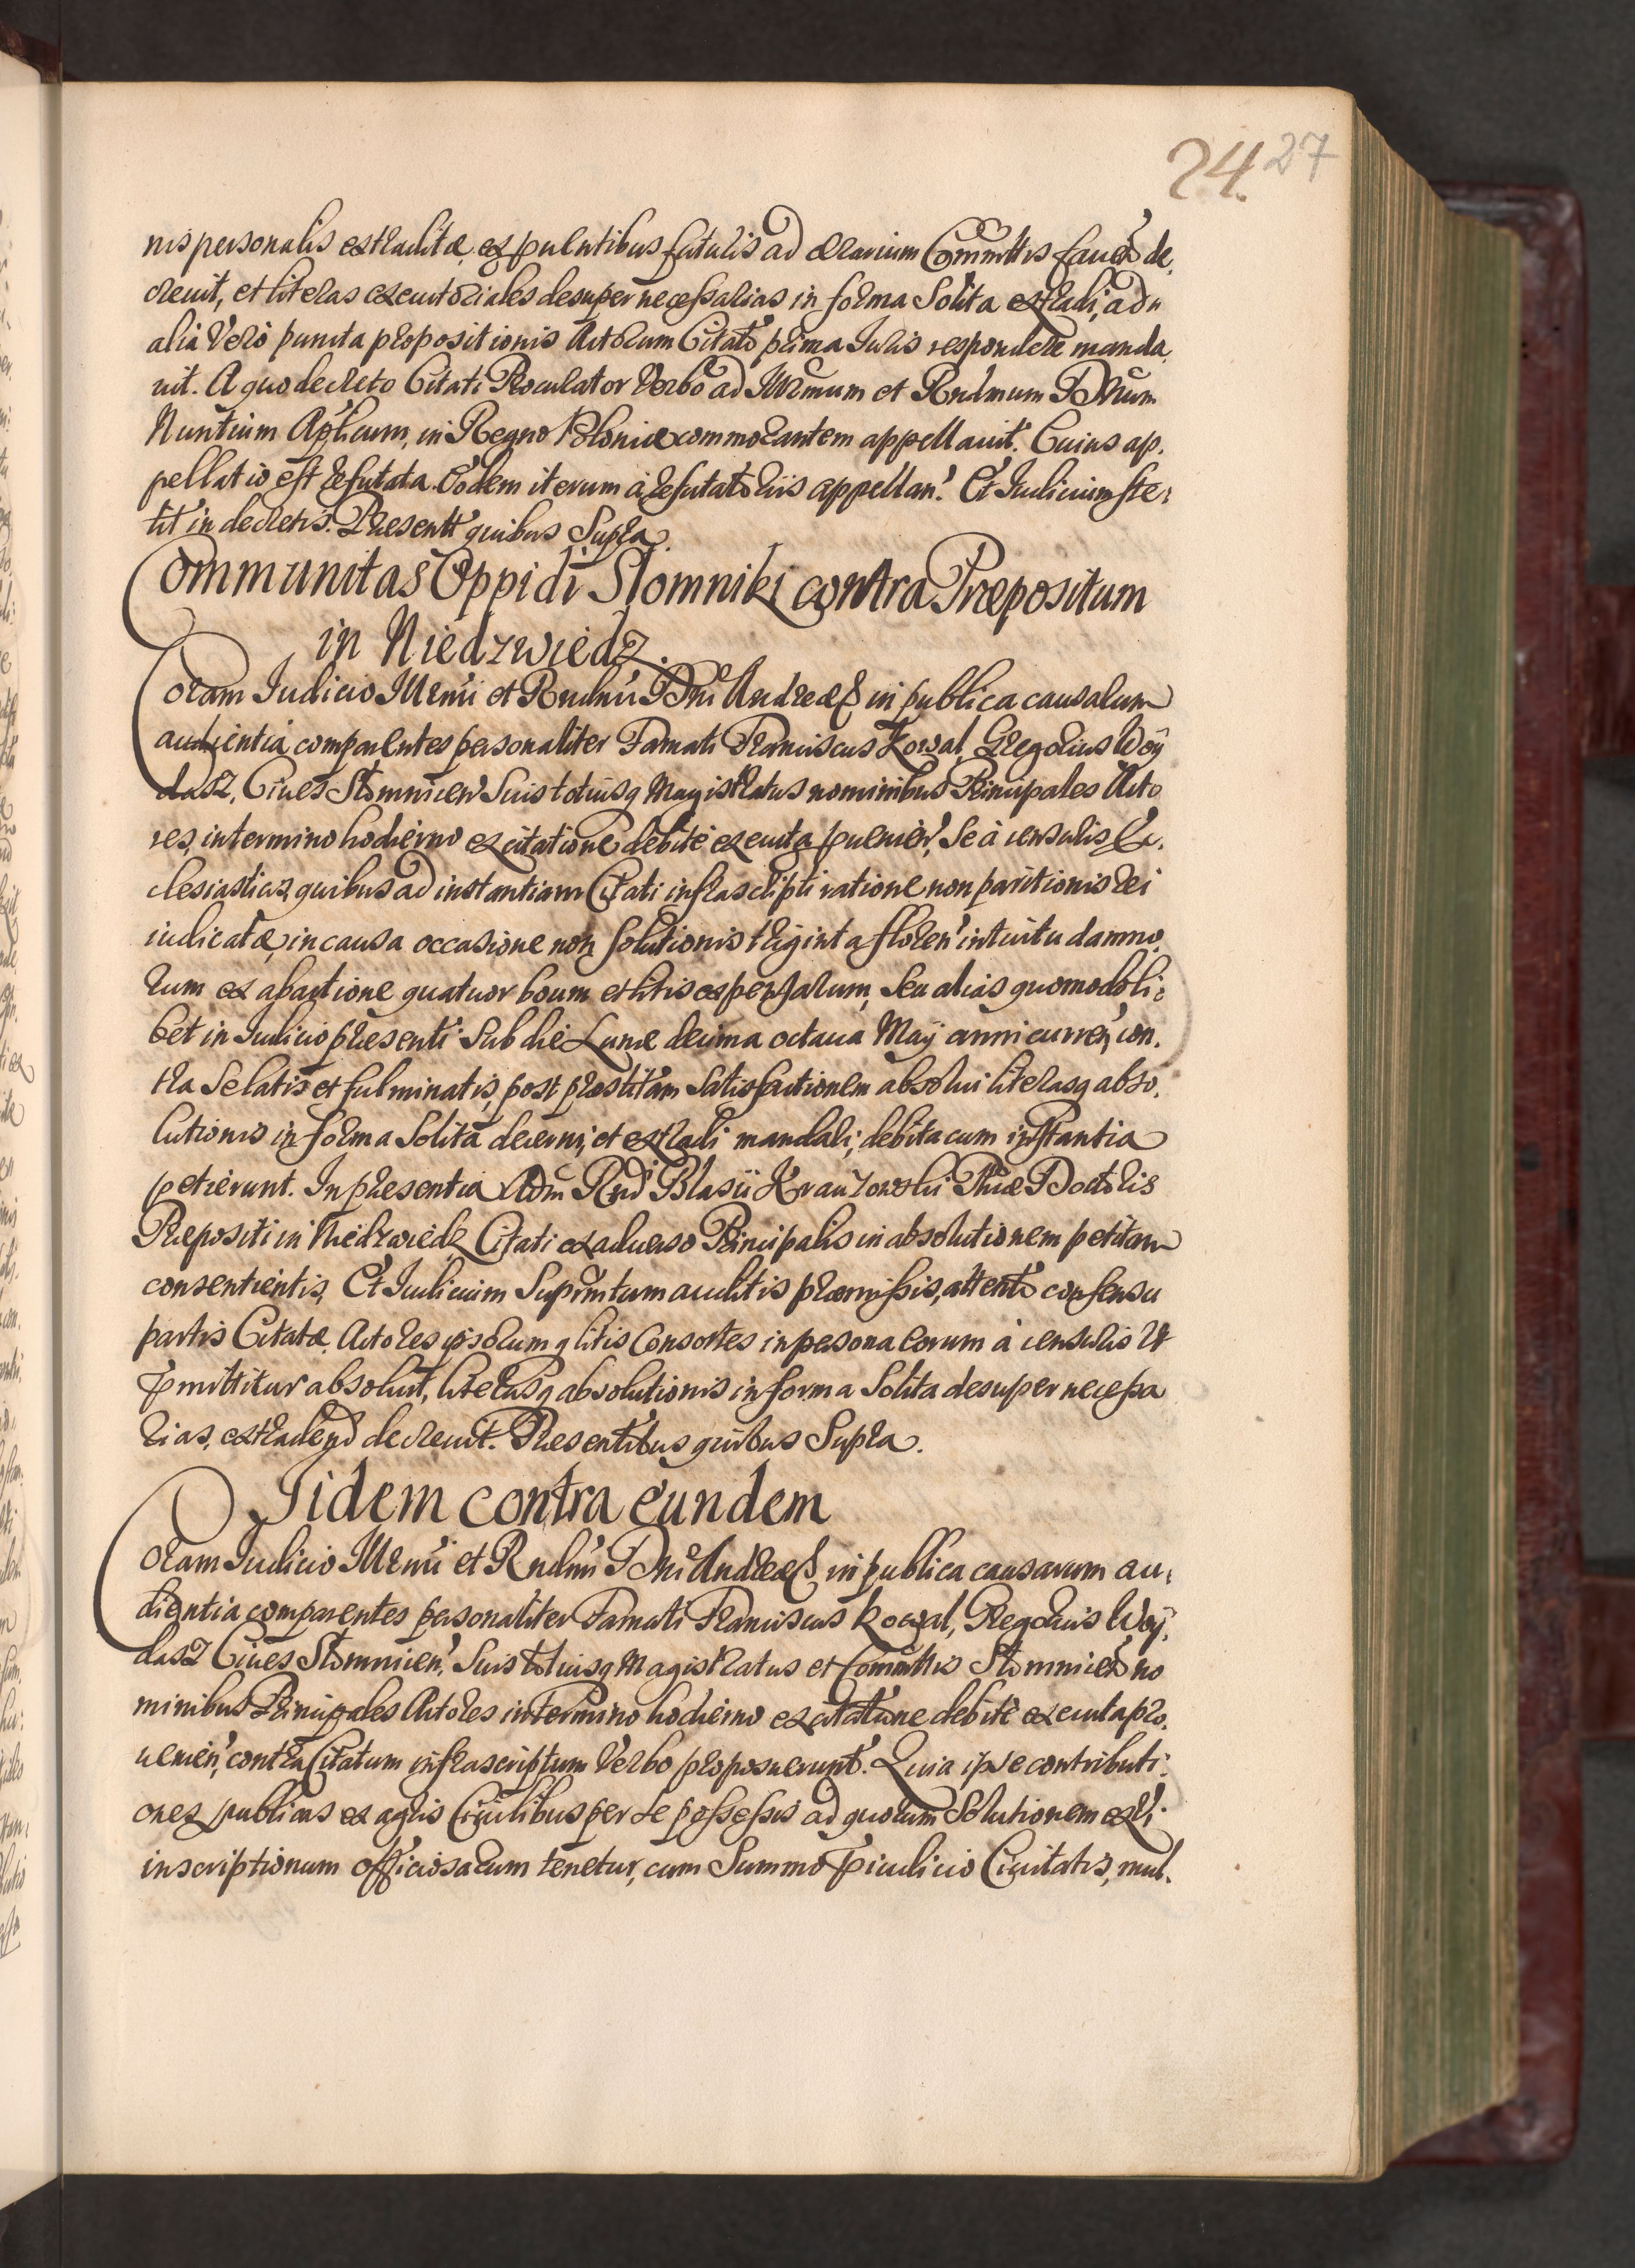 24. 27
nis personalis extraditæ, ex puentibus futuris ad ærarium Commttis fauen̄ de,
creuit, et literas executoriales desuper necessarias in forma Solita extradi, ad
alia Vero puncta propositionis Actorum Citatō prima Iuris respondere manda,
uit. A quo decreto Citati Procurator Verbo ad Illrmum et Rndmum Dnum
Nuntium Aplicum, in Regno Poloniæ commorantem appellauit. Cuius ap,
pellatio est refutata. Eodem iterum à refutatoriis appellan'. Et Iudicium ste,
tit in decretis. Præsentt' quibus Supra.
Communitas Oppidi Slomniki contra Præpositum
in Niedzwiedz.
Coram Iudicio Illrmi et Rndmi Dni Andreæ in publica causarum
audientia comparentes personaliter Famati Franciscus Kowal, Gregorius Woÿ
dasz, Ciues Slomnicen Suis totiusq Magistratus nominibus Principales Acto
res, in termino hodierno ex citatione debite executa puenien', Se à censuris Ec,
clesiasticis, quibus ad instantiam Citati infrascripti ratione non paritionis rei
iudicatæ, in causa occasione non Solutionis triginta floren' intuitu damno,
rum ex abactione quatuor boum et litis expensarum, Seu alias quomodoli,
bet in Iudicio præsenti Sub die Lunæ decima octaua Maÿ anni curren', con,
tra Se latis et fulminatis, post præstitam Satisfactionem absolui literasq abso,
lutionis in forma Solita decerni, et extradi mandari, debita cum instantia
petierunt. In præsentia Adm Rnd Blasii Krauzowski Phiæ Doctoris
Præpositi in Niedzwiedz Citati ex aduerso Principalis in absolutionem petitam
consentientis, Et Iudicium Suprmtum auditis præmissis, attentō consensu
partis Citatæ, Actores ipsorumq litis Consortes in persona eorum à censuris Vt
pmittitur absoluit, literasq absolutionis in forma Solita desuper necessa
rias, extradend decreuit. Præsentibus quibus Supra.
Iidem contra eundem
Coram Iudicio Illrmi et Rndmi Dni Andreæ in publica causarum au,
dientia comparentes personaliter Famati Franciscus Kowal, Gregorius Woÿ,
dasz Ciues Slomnicen', Suis totiusq Magistratus et Commttis Slomnicen̄ no
minibus Principales Actores in termino hodierno ex citatione debite executa pro,
uenien', contra Citatum infrascriptum Verbo proposuerunt. Quia ipse contributi,
ones publicas ex agris Ciuilibus per Se possessis ad quorum Solutionem ex Vi
inscriptionum officiosarum tenetur, cum Summo piudicio Ciuitatis, mul,